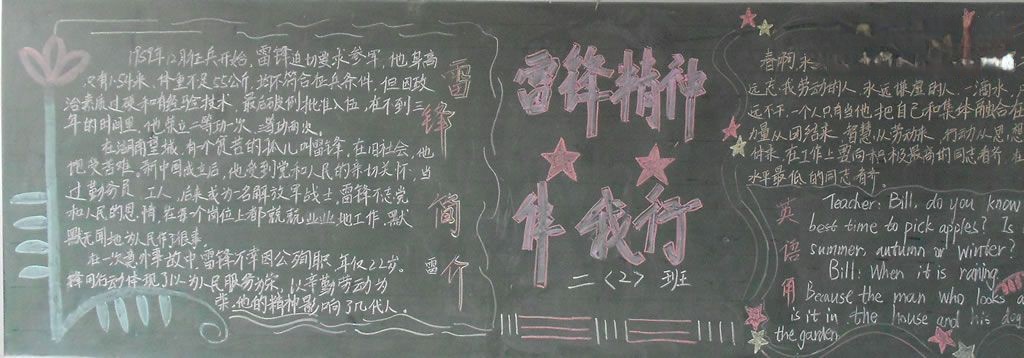 1958年12月征兵开始，雷锋迫切要求参军，他身高
只有1.54米，体重不足55公斤，均不符合征兵条件，但因政
治素质过硬和有经验技术，最后破例批准入伍，在不到三
年的时间里，他荣立二等功一次，三等功两次。
在湖南望城，有个贫苦的孤儿叫雷锋，在旧社会，他
饱受苦难。新中国成立后，他受到党和人民的亲切关怀，当
过勤务员 工人，后来成为一名解放军战士，雷锋不忘党
和人民的恩情，在每个岗位上都兢兢业业地工作，默
默无闻地为人民作了很事。
在一次意外事故中，雷锋不幸因公殉职，年仅22岁。
以辛勤劳动为
荣，他的精神影响了几代人。
雷锋简介
雷
雷锋精神
伴我行
二〈2〉班
春润水
远是我劳动的人，永远谦虚的人，一滴水，
远不干，一个人只有当他把自己和集体融合在
力量从团结来，智慧从劳动来，行动从思想
在工作上要向积极最高的同志看齐，在
水平最低的同志看齐。
英语角
Teacher: Bill, do you know
best time to pick apples? Is
summer, autumn or winter?
Bill: When it is raning
Because the man who looks a
is it in the house and his dog
the garden